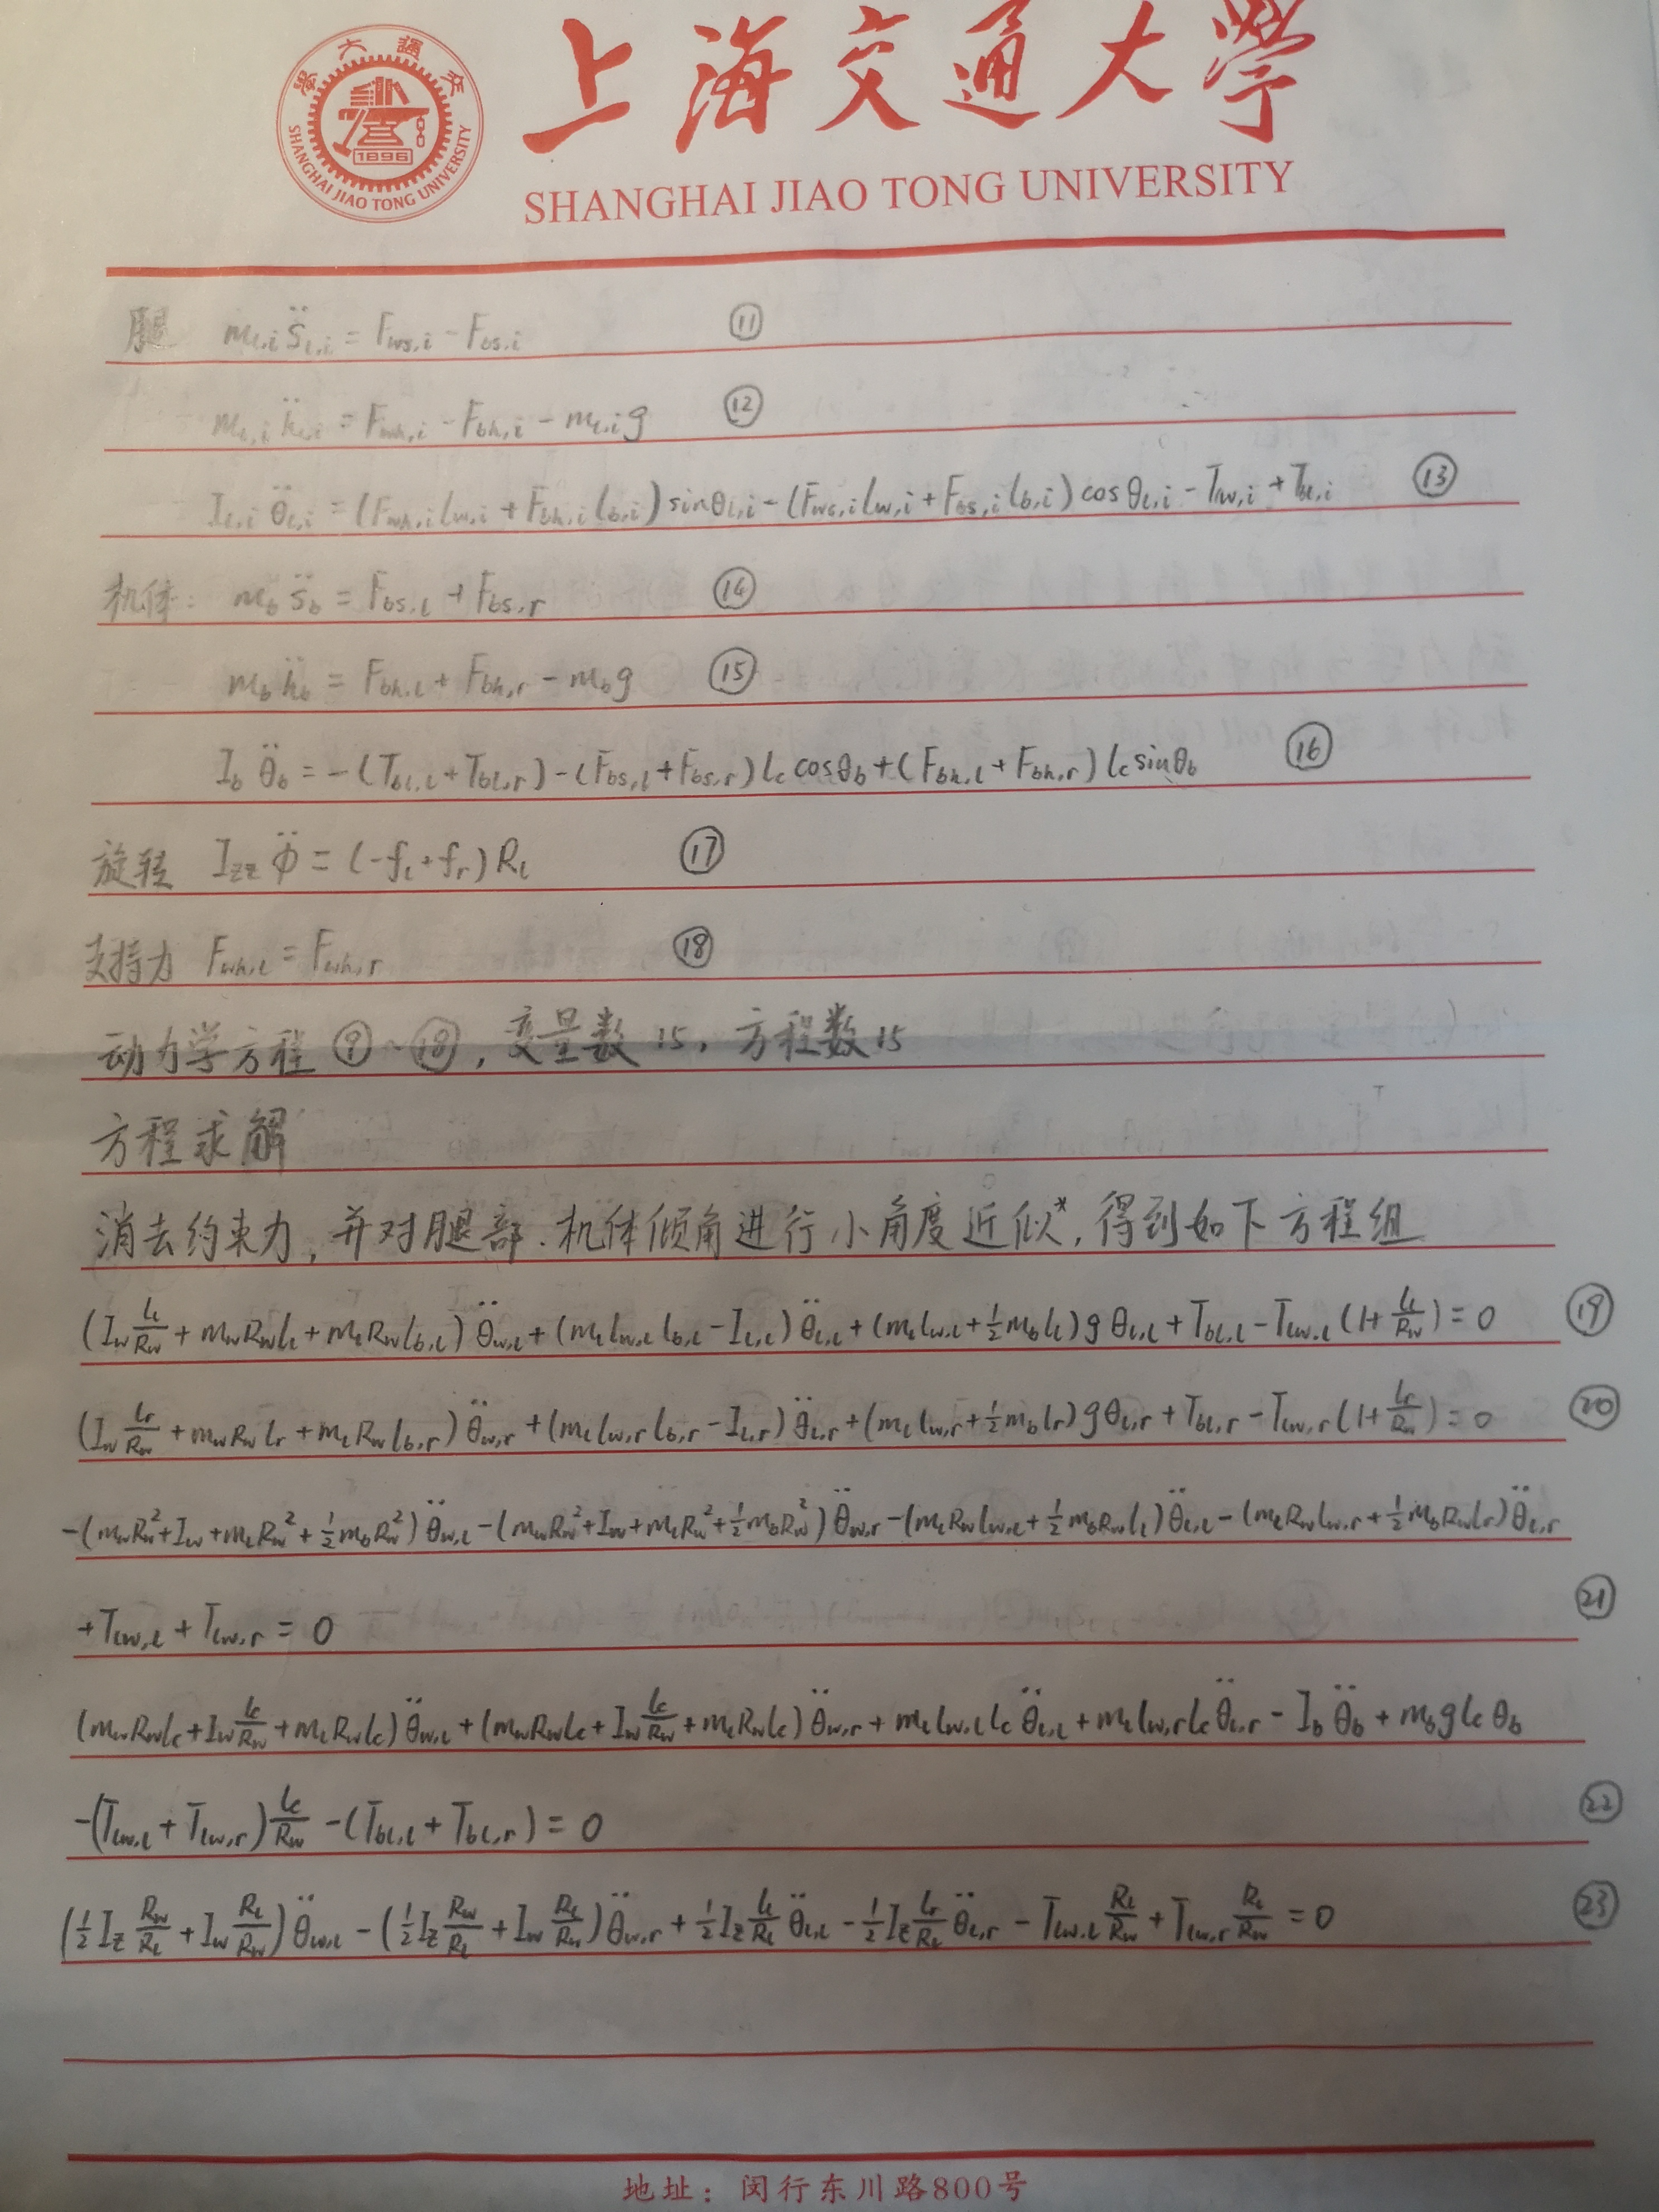 上海交通大學
SHANGHAI JIAO TONG UNIVERSITY
1896
SHANGHAI JIAO TONG UNIVERSITY
腿 m_{l,i} s̈_{l,i} = F_{ws,i} - F_{bs,i} ⑪
m_{l,i} ḧ_{l,i} = F_{wh,i} - F_{bh,i} - m_{l,i} g ⑫
I_{l,i} θ̈_{l,i} = (F_{wh,i} l_{w,i} + F_{bh,i} l_{b,i}) sinθ_{l,i} - (F_{ws,i} l_{w,i} + F_{bs,i} l_{b,i}) cosθ_{l,i} - T_{lw,i} + T_{bl,i} ⑬
机体: m_b s̈_b = F_{bs,l} + F_{bs,r} ⑭
m_b ḧ_b = F_{bh,l} + F_{bh,r} - m_b g ⑮
I_b θ̈_b = -(T_{bl,l} + T_{bl,r}) - (F_{bs,l} + F_{bs,r}) l_c cosθ_b + (F_{bh,l} + F_{bh,r}) l_c sinθ_b ⑯
旋转 I_{zz} φ̈ = (-f_l + f_r) R_l ⑰
支持力 F_{wh,l} = F_{wh,r} ⑱
动力学方程 ⑨~⑱, 变量数 15, 方程数 15
方程求解
消去约束力, 并对腿部、机体倾角进行小角度近似*, 得到如下方程组
(I_w l_l/R_w + m_w R_w l_l + m_l R_w l_{b,l}) θ̈_{w,l} + (m_l l_{w,l} l_{b,l} - I_{l,l}) θ̈_{l,l} + (m_l l_{w,l} + ½ m_b l_l) g θ_{l,l} + T_{bl,l} - T_{lw,l} (1 + l_l/R_w) = 0 ⑲
(I_w l_r/R_w + m_w R_w l_r + m_l R_w l_{b,r}) θ̈_{w,r} + (m_l l_{w,r} l_{b,r} - I_{l,r}) θ̈_{l,r} + (m_l l_{w,r} + ½ m_b l_r) g θ_{l,r} + T_{bl,r} - T_{lw,r} (1 + l_r/R_w) = 0 ⑳
-(m_w R_w² + I_w + m_l R_w² + ½ m_b R_w²) θ̈_{w,l} - (m_w R_w² + I_w + m_l R_w² + ½ m_b R_w²) θ̈_{w,r} - (m_l R_w l_{w,l} + ½ m_b R_w l_l) θ̈_{l,l} - (m_l R_w l_{w,r} + ½ m_b R_w l_r) θ̈_{l,r}
+ T_{lw,l} + T_{lw,r} = 0 ㉑
(m_w R_w l_c + I_w l_c/R_w + m_l R_w l_c) θ̈_{w,l} + (m_w R_w l_c + I_w l_c/R_w + m_l R_w l_c) θ̈_{w,r} + m_l l_{w,l} l_c θ̈_{l,l} + m_l l_{w,r} l_c θ̈_{l,r} - I_b θ̈_b + m_b g l_c θ_b
-(T_{lw,l} + T_{lw,r}) l_c/R_w - (T_{bl,l} + T_{bl,r}) = 0 ㉒
(½ I_z R_w/R_l + I_w R_l/R_w) θ̈_{w,l} - (½ I_z R_w/R_l + I_w R_l/R_w) θ̈_{w,r} + ½ I_z l_l/R_l θ̈_{l,l} - ½ I_z l_r/R_l θ̈_{l,r} - T_{lw,l} R_l/R_w + T_{lw,r} R_l/R_w = 0 ㉓
地址：闵行东川路800号